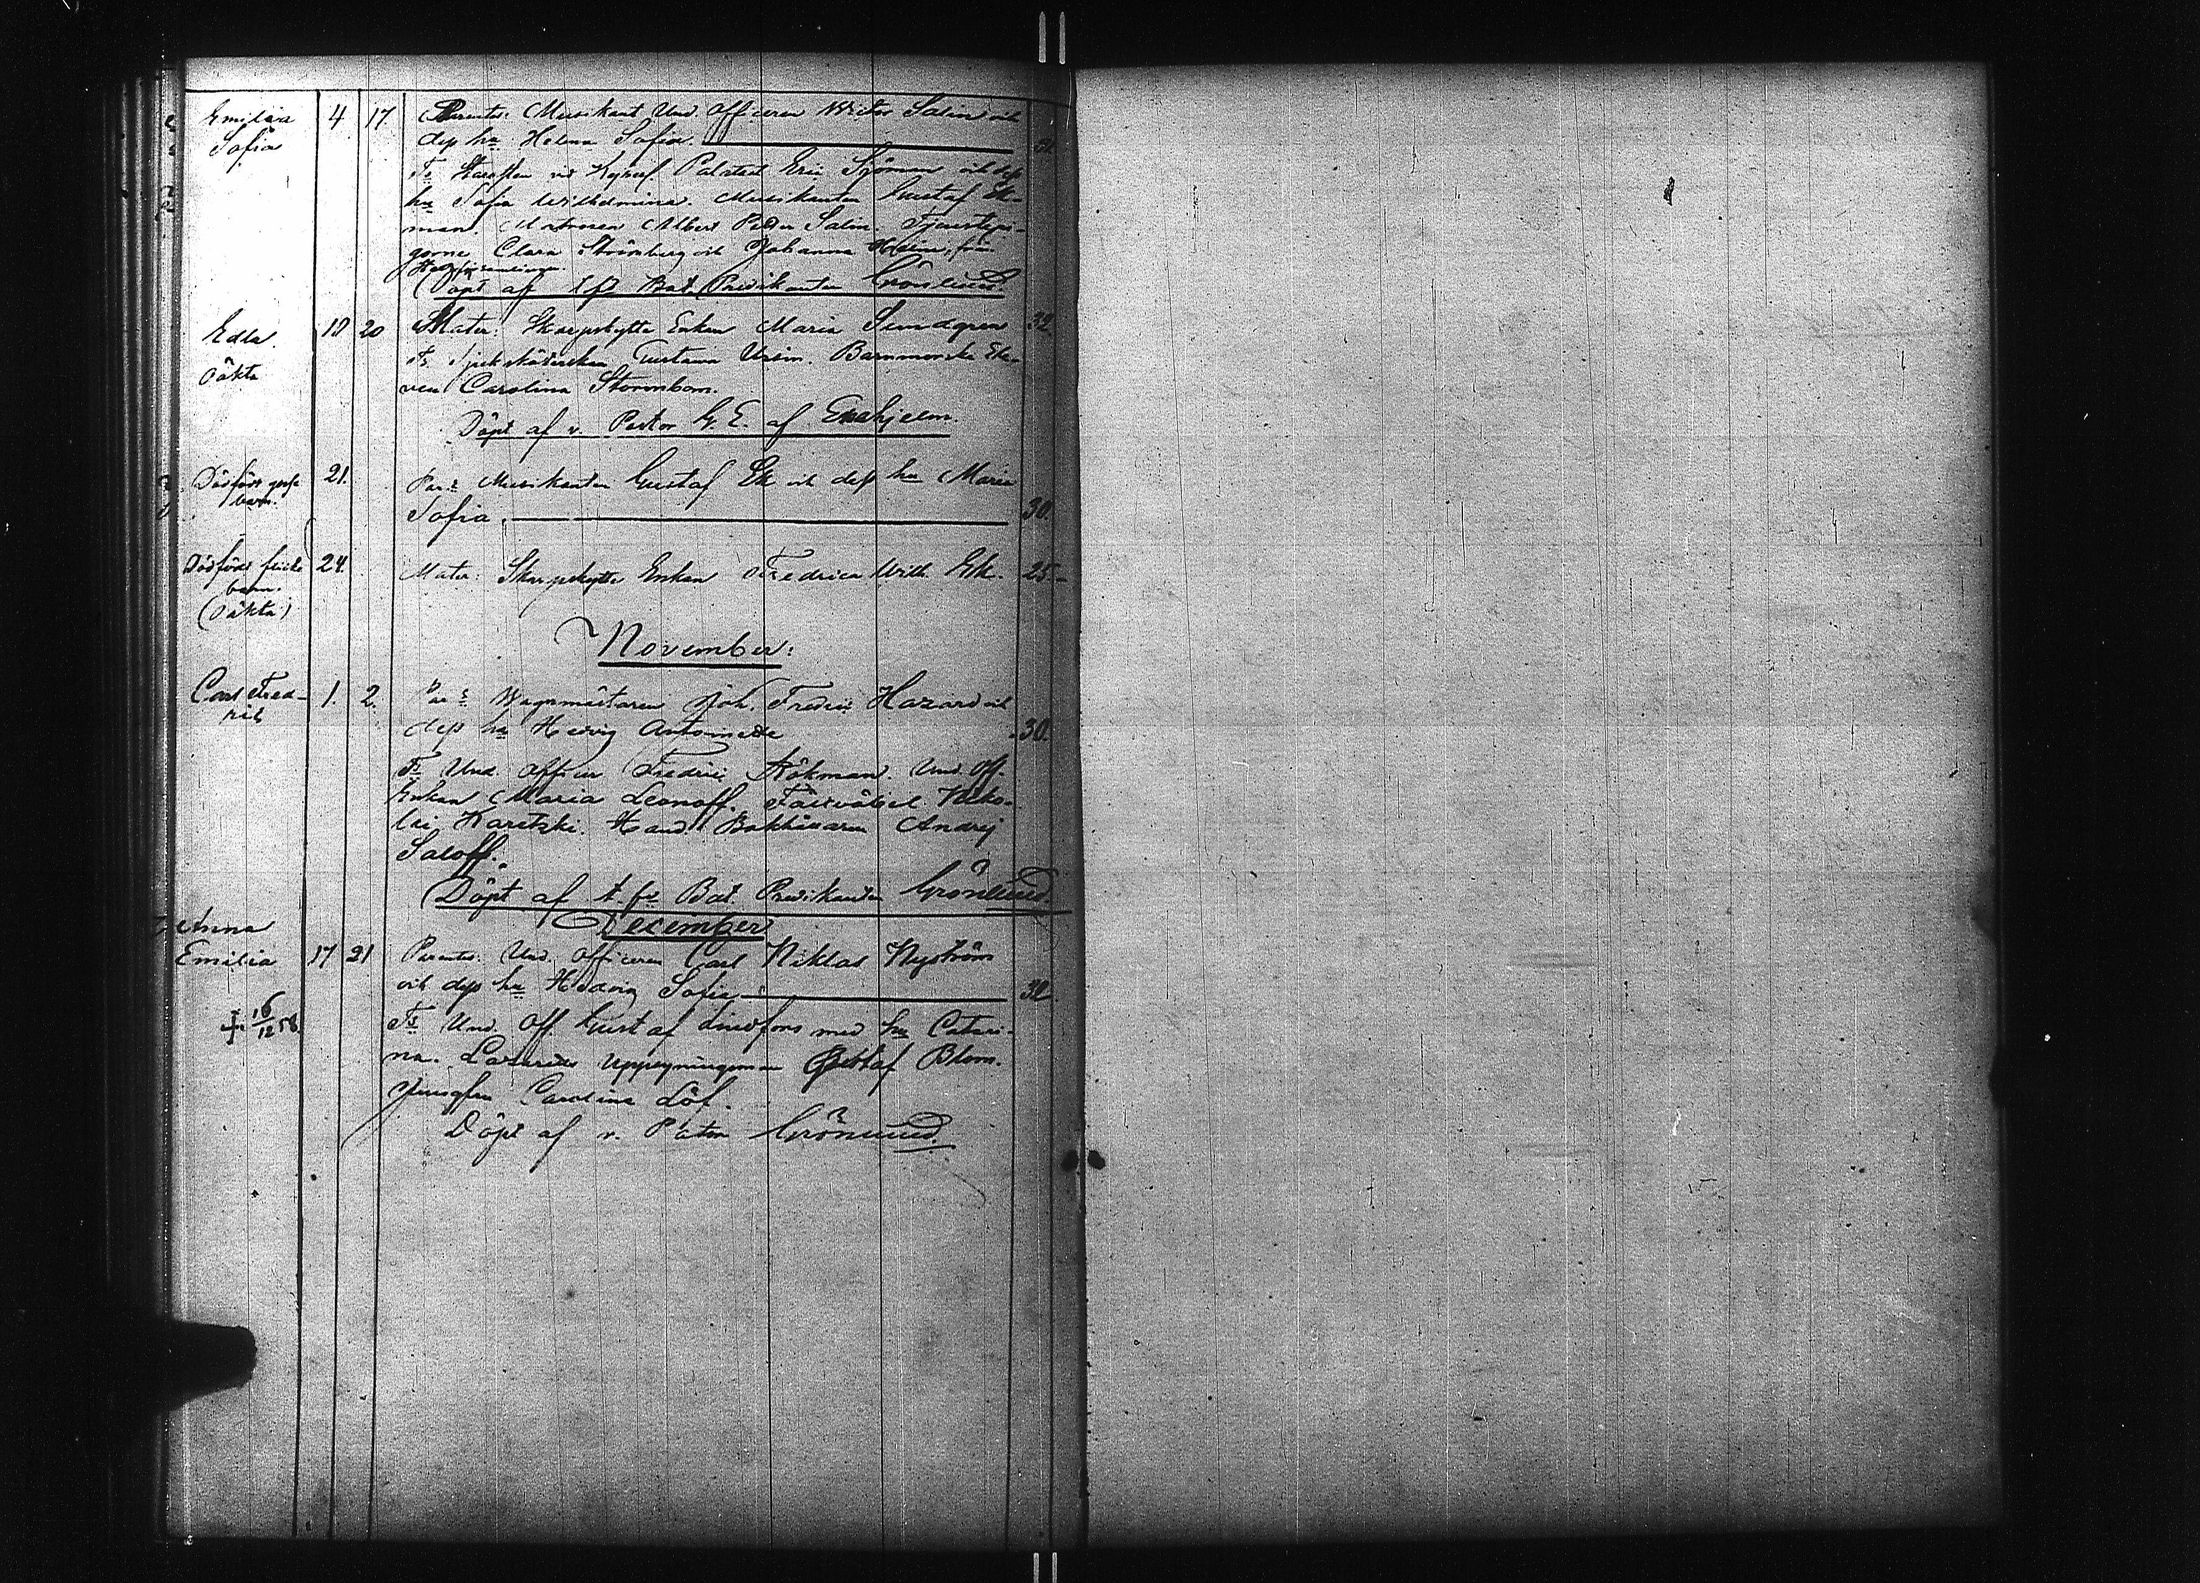 Emilia 4 17 Parentes: Musikant Und. Officeren Victor Salin och
Sofia dess hu Helena Sofia.
Ts vid Kejserl Palatset Eric Sjöman och dess
hu Sofia Wilhelmina. Musikanten Gustaf Ek-
man. Matrosen Albert Peter Salin. Tjensteju-
gorne Clara Strömberg och Johanna från
Döpt af Bat. Predikanten Grönlund
Edla 19 20 Mater: Skarpskytte Enkan Maria Sundgren 32.
oäkta Ts Sjuksköterskan Gustava Barnmorske Ele-
ven Carolina Stormbom.
Döpt af v. Pastor G. E. af Enehjelm.
Dödfödt gosse 21. Par:s Musikanten Gustaf Ek och dess hu Maria
barn. Sofia. 30.
Dödfödt flicke 24. Mater: Skarpskytte Enkan Fredrica Wilh. Ek. 25
barn.
(oäkta)
November:
Carl Fred- 1. 2. Par:s Wagnmästaren Joh. Fredric Hazard och
rik dess hu Hedvig Antoinette 30.
Ts Und. Officer Fredric Stökman. Und. Off.
Enkan Maria Leonoff. Fältväbel Niko-
lai Karetski. Hand. Bokhållaren Andrej
Saloff.
Döpt af t. f. Bat. Predikanten Grönlund.
December
Anna
Emilia 17 21 Parentes. Und. Officeren Carl Niklas Nyström
och dess hu Hedvig Sofia 32.
† 16/12 58. Ts Und. Off Gustaf Lindfors med hu Catari-
na. Lazaretts Uppsyningsman Gustaf Blom.
Jungfru Carolina Löf.
Döpt af v. Pastor Grönlund.